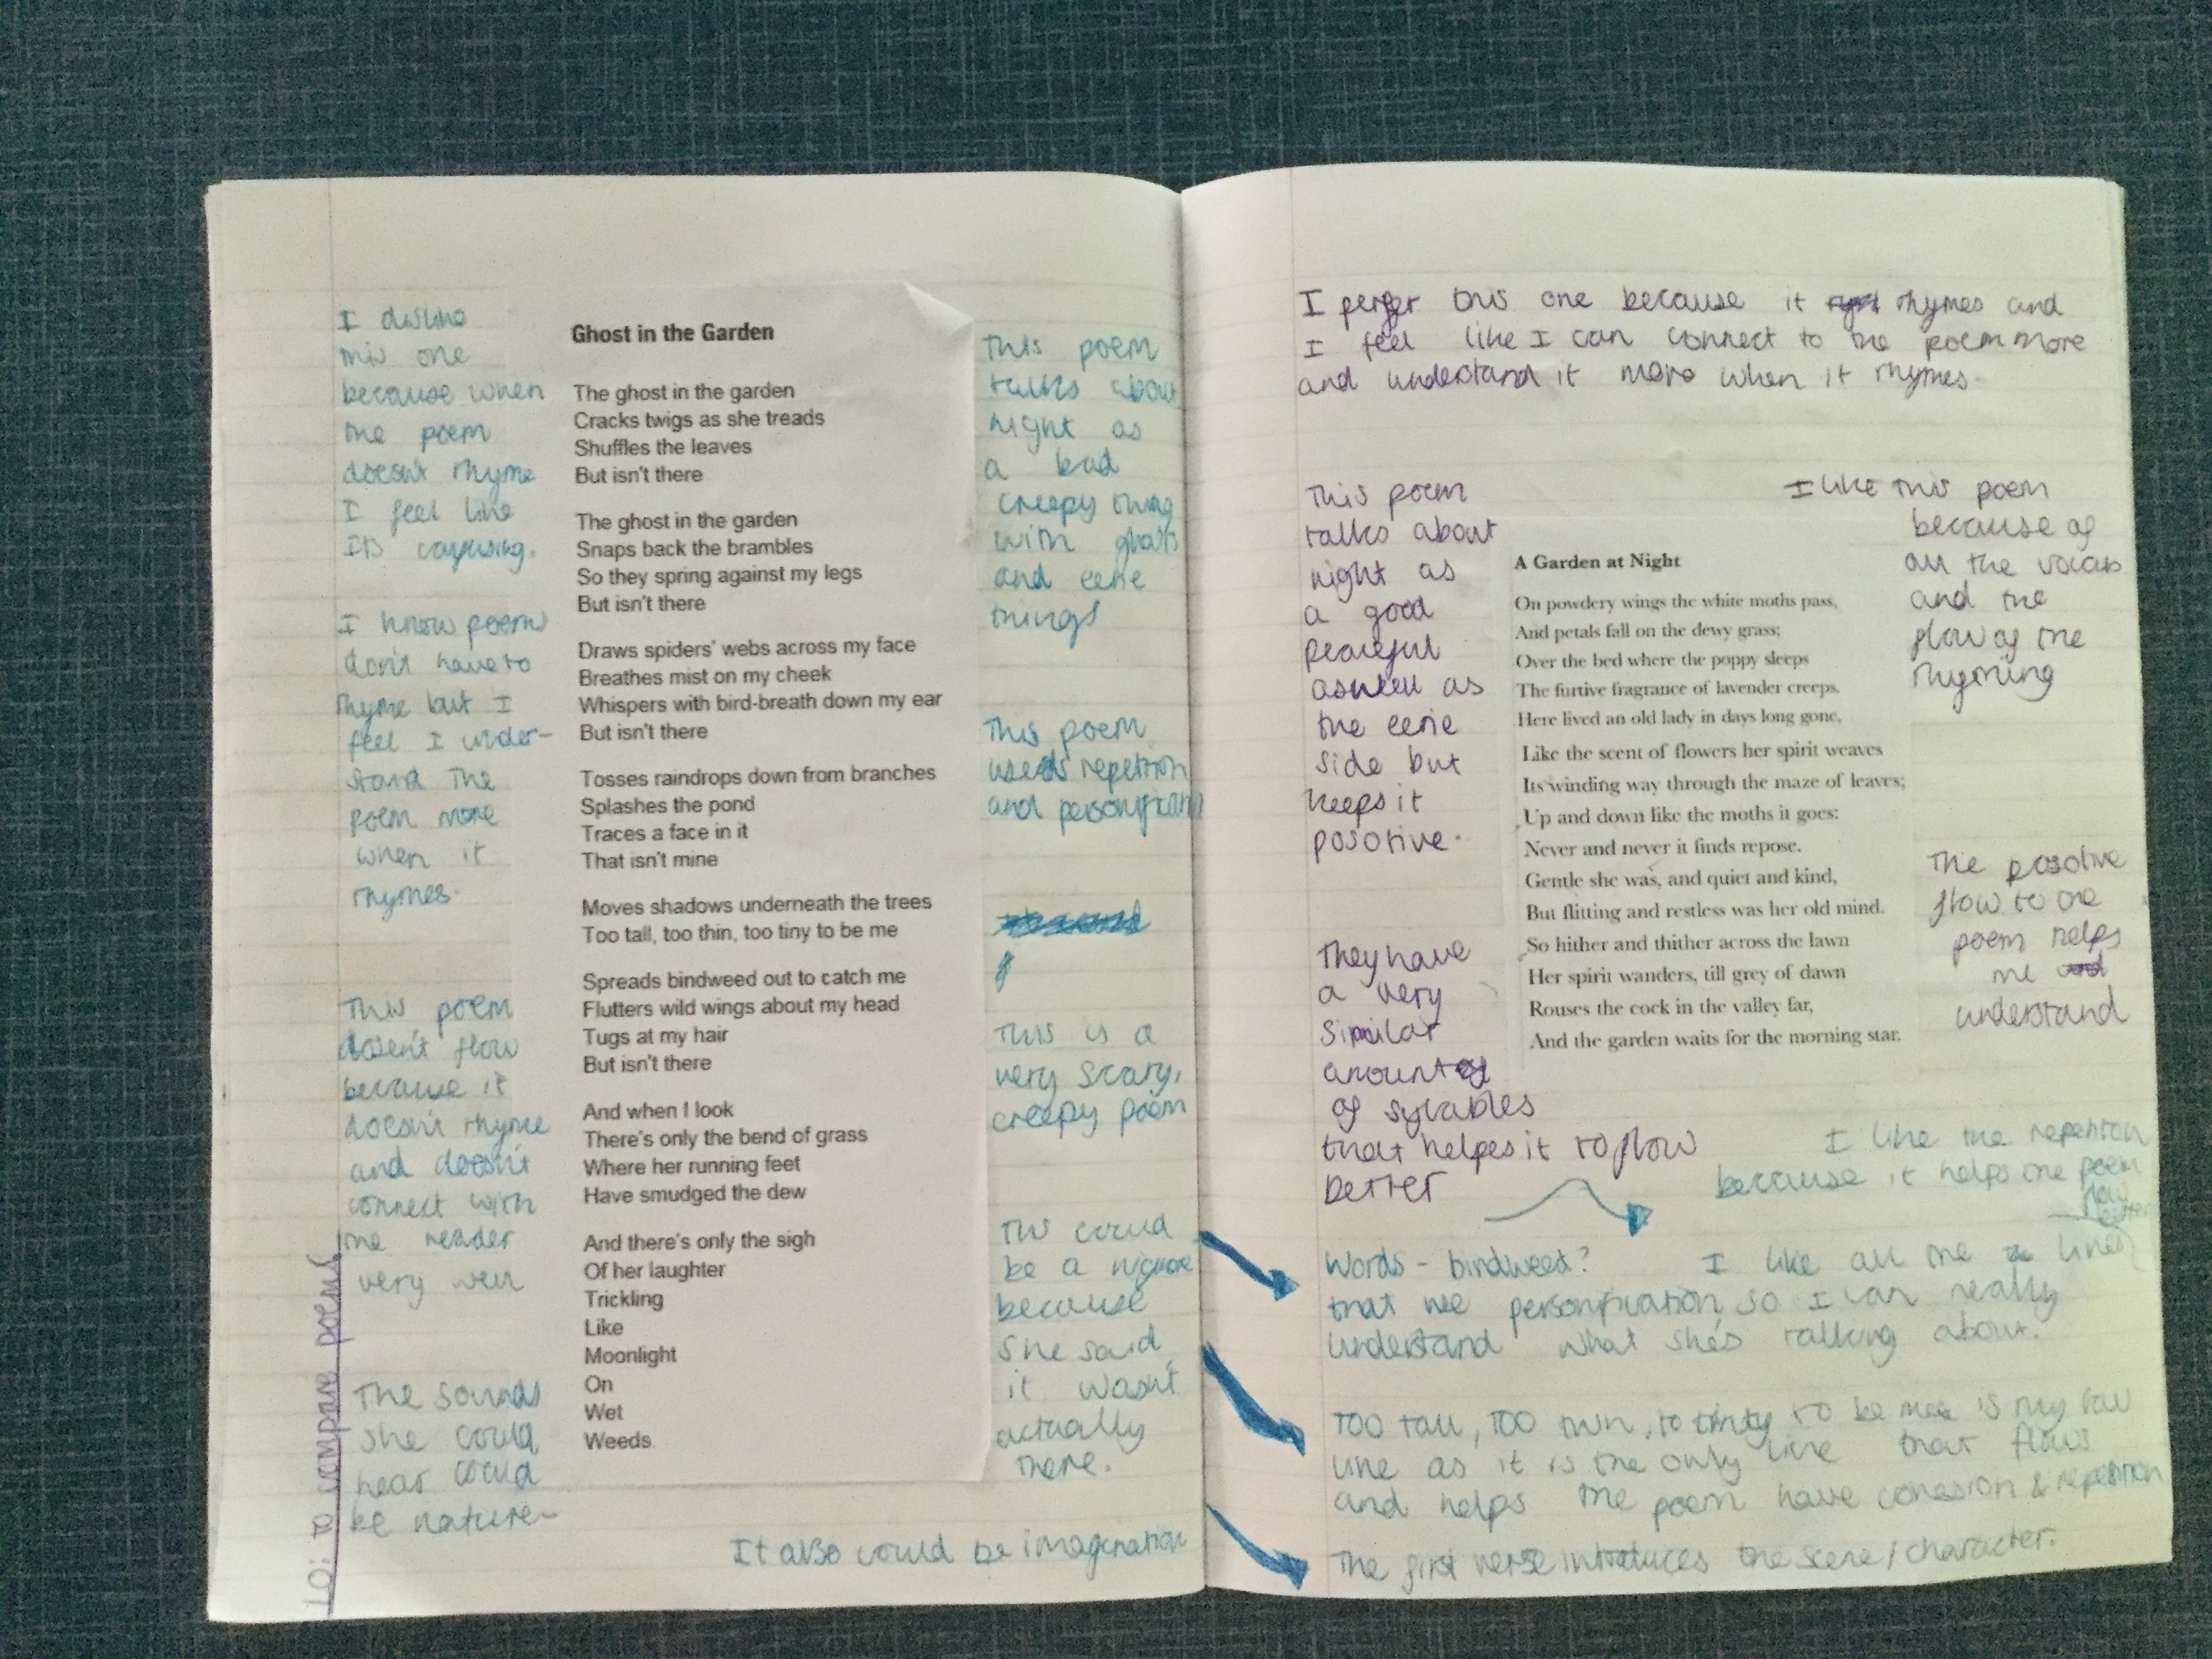 LO: to compare poems
I dislike
this one
because when
the poem
doesn't rhyme
I feel like
Its confusing.
I know poems
don't have to
rhyme but I
feel I under-
stand the
poem more
when it
rhymes.
This poem
doesn't flow
because it
doesn't rhyme
and doesn't
connect with
the reader
very well
The sounds
she could
hear could
be nature-
Ghost in the Garden
The ghost in the garden
Cracks twigs as she treads
Shuffles the leaves
But isn't there
The ghost in the garden
Snaps back the brambles
So they spring against my legs
But isn't there
Draws spiders' webs across my face
Breathes mist on my cheek
Whispers with bird-breath down my ear
But isn't there
Tosses raindrops down from branches
Splashes the pond
Traces a face in it
That isn't mine
Moves shadows underneath the trees
Too tall, too thin, too tiny to be me
Spreads bindweed out to catch me
Flutters wild wings about my head
Tugs at my hair
But isn't there
And when I look
There's only the bend of grass
Where her running feet
Have smudged the dew
And there's only the sigh
Of her laughter
Trickling
Like
Moonlight
On
Wet
Weeds
This poem
talks about
night as
a bad
creepy thing
with ghosts
and eerie
things
This poem
uses repetition
and personification
This is a
very scary,
creepy poem
This could
be a
because
she said
it wasn't
actually
there.
It also could be imagination
I perfer this one because it rhymes and
I feel like I can connect to the poem more
and understand it more when it rhymes.
This poem
talks about
night as
a good
peaceful
aswell as
the eerie
side but
keeps it
posotive.
They have
a very
similar
amount of
of sylables
that helps it to flow
better
A Garden at Night
On powdery wings the white moths pass,
And petals fall on the dewy grass;
Over the bed where the poppy sleeps
The furtive fragrance of lavender creeps.
Here lived an old lady in days long gone,
Like the scent of flowers her spirit weaves
Its winding way through the maze of leaves;
Up and down like the moths it goes:
Never and never it finds repose.
Gentle she was, and quiet and kind,
But flitting and restless was her old mind.
So hither and thither across the lawn
Her spirit wanders, till grey of dawn
Rouses the cock in the valley far,
And the garden waits for the morning star.
I like this poem
because of
all the vocab
and the
flow of the
rhyming
The posotive
flow to the
poem helps
me
understand
I like the repetition
because it helps the poem
flow
better
Words - bindweed? I like all the lines
that use personification so I can really
understand what she's talking about.
Too tall, too thin, to tinty to be me is my fav
line as it is the only line that flows
and helps the poem have cohesion & repetition
The first verse introduces the scene/character.